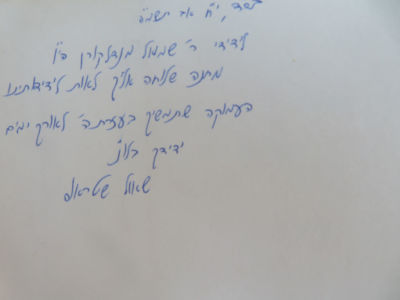 בס"ד, י"ח אב תשמ"ה
לידידי ר' שמואל מנדלקורן הי"ו
מתנה שלוחה אליך לאות לידידותינו
העמוקה שתמשיך בעזרת ה' לאורך ימים
ידידך בלו"נ
שאול שטראוס